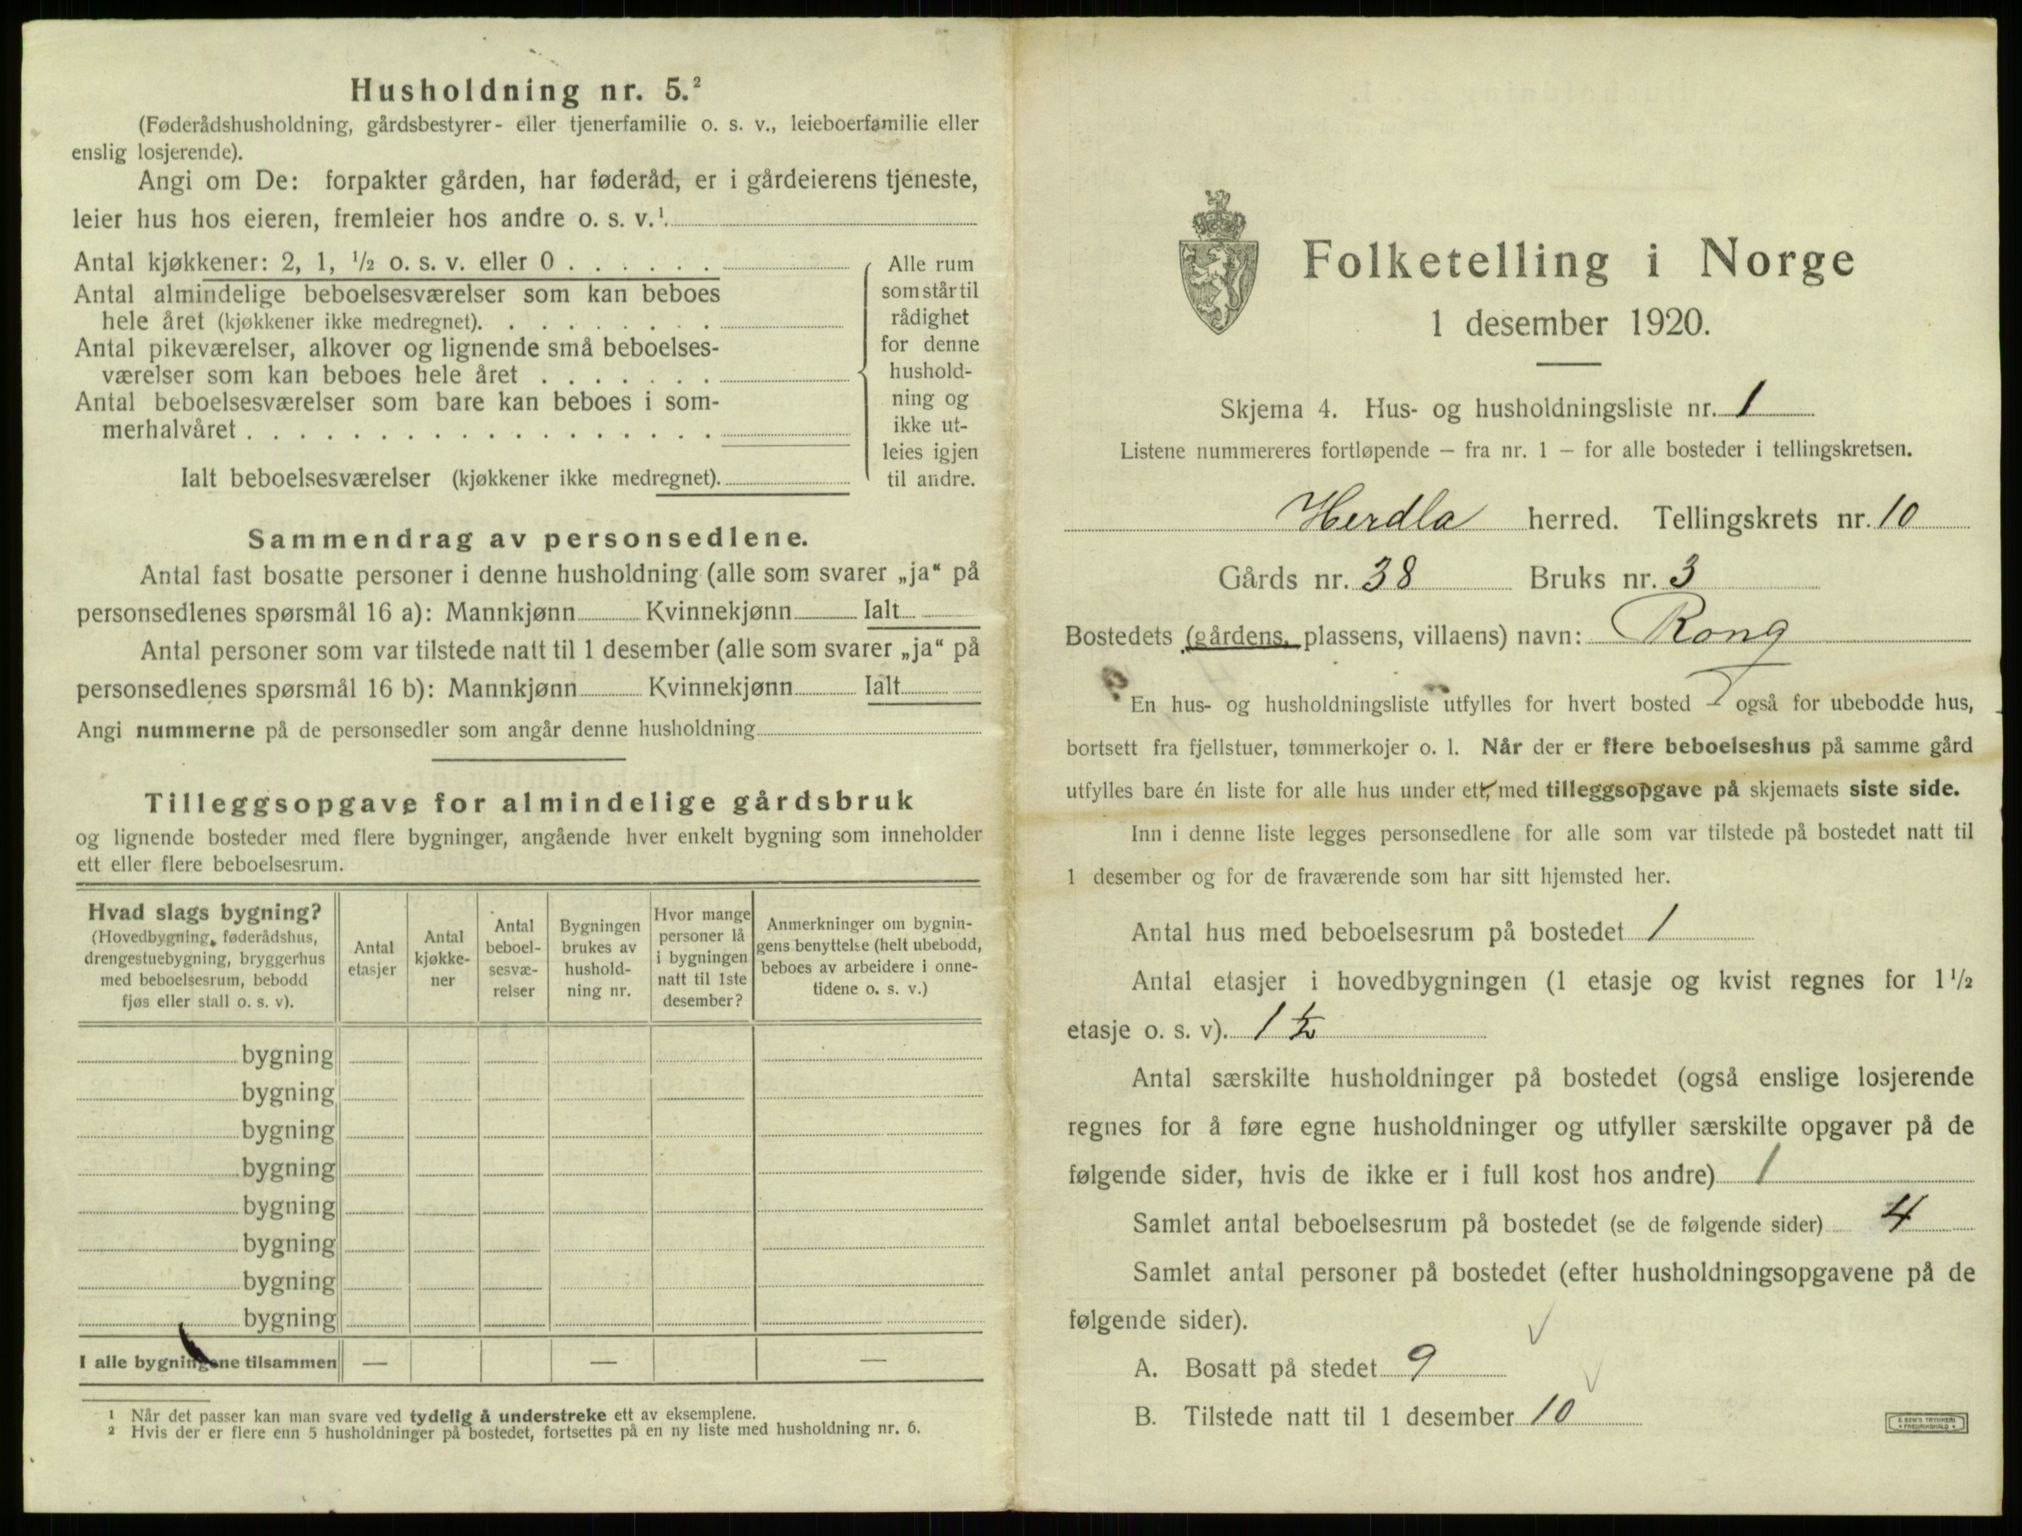 Husholdning nr. 5.²
(Føderådshusholdning, gårdsbestyrer- eller tjenerfamilie o. s. v., leieboerfamilie eller
enslig losjerende).
Angi om De: forpakter gården, har føderåd, er i gårdeierens tjeneste,
leier hus hos eieren, fremleier hos andre o. s. v.¹.
Antal kjøkkener: 2, 1, ½ o. s. v. eller 0 . . . . . .
Antal almindelige beboelsesværelser som kan beboes
hele året (kjøkkener ikke medregnet). . . . . . . . .
Antal pikeværelser, alkover og lignende små beboelses-
værelser som kan beboes hele året . . . . . . .
Antal beboelsesværelser som bare kan beboes i som-
merhalvåret . . . . . . . . . . . . . . . . . .
Ialt beboelsesværelser (kjøkkener ikke medregnet).
Alle rum
som står til
rådighet
for denne
hushold-
ning og
ikke ut-
leies igjen
til andre.
Sammendrag av personsedlene.
Antal fast bosatte personer i denne husholdning (alle som svarer „ja“ på
personsedlenes spørsmål 16 a): Mannkjønn Kvinnekjønn Ialt
Antal personer som var tilstede natt til 1 desember (alle som svarer „ja“ på
personsedlenes spørsmål 16 b): Mannkjønn Kvinnekjønn Ialt
Angi nummerne på de personsedler som angår denne husholdning
Tilleggsopgave for almindelige gårdsbruk
og lignende bosteder med flere bygninger, angående hver enkelt bygning som inneholder
ett eller flere beboelsesrum.
Hvad slags bygning?
(Hovedbygning, føderådshus,
drengestuebygning, bryggerhus
med beboelsesrum, bebodd
fjøs eller stall o. s. v).
Antal
etasjer
Antal
kjøkke-
ner
Antal
beboel-
sesvæ-
relser
Bygningen
brukes av
hushold-
ning nr.
Hvor mange
personer lå
i bygningen
natt til 1ste
desember?
Anmerkninger om bygnin-
gens benyttelse (helt ubebodd,
beboes av arbeidere i onne-
tidene o. s. v.)
bygning
bygning
bygning
bygning
bygning
bygning
bygning
bygning
I alle bygningene tilsammen — — —
¹ Når det passer kan man svare ved tydelig å understreke ett av eksemplene.
² Hvis der er flere enn 5 husholdninger på bostedet, fortsettes på en ny liste med husholdning nr. 6.
Folketelling i Norge
1 desember 1920.
Skjema 4. Hus- og husholdningsliste nr. 1
Listene nummereres fortløpende – fra nr. 1 – for alle bosteder i tellingskretsen.
Herdla herred. Tellingskrets nr. 10
Gårds nr. 38 Bruks nr. 3
Bostedets (gårdens, plassens, villaens) navn: Rong
En hus- og husholdningsliste utfylles for hvert bosted – også for ubebodde hus,
bortsett fra fjellstuer, tømmerkojer o. l. Når der er flere beboelseshus på samme gård
utfylles bare én liste for alle hus under ett, med tilleggsopgave på skjemaets siste side.
Inn i denne liste legges personsedlene for alle som var tilstede på bostedet natt til
1 desember og for de fraværende som har sitt hjemsted her.
Antal hus med beboelsesrum på bostedet 1
Antal etasjer i hovedbygningen (1 etasje og kvist regnes for 1½
etasje o. s. v). 1½
Antal særskilte husholdninger på bostedet (også enslige losjerende
regnes for å føre egne husholdninger og utfyller særskilte opgaver på de
følgende sider, hvis de ikke er i full kost hos andre) 1
Samlet antal beboelsesrum på bostedet (se de følgende sider) 4
Samlet antal personer på bostedet (efter husholdningsopgavene på de
følgende sider).
A. Bosatt på stedet 9
B. Tilstede natt til 1 desember 10